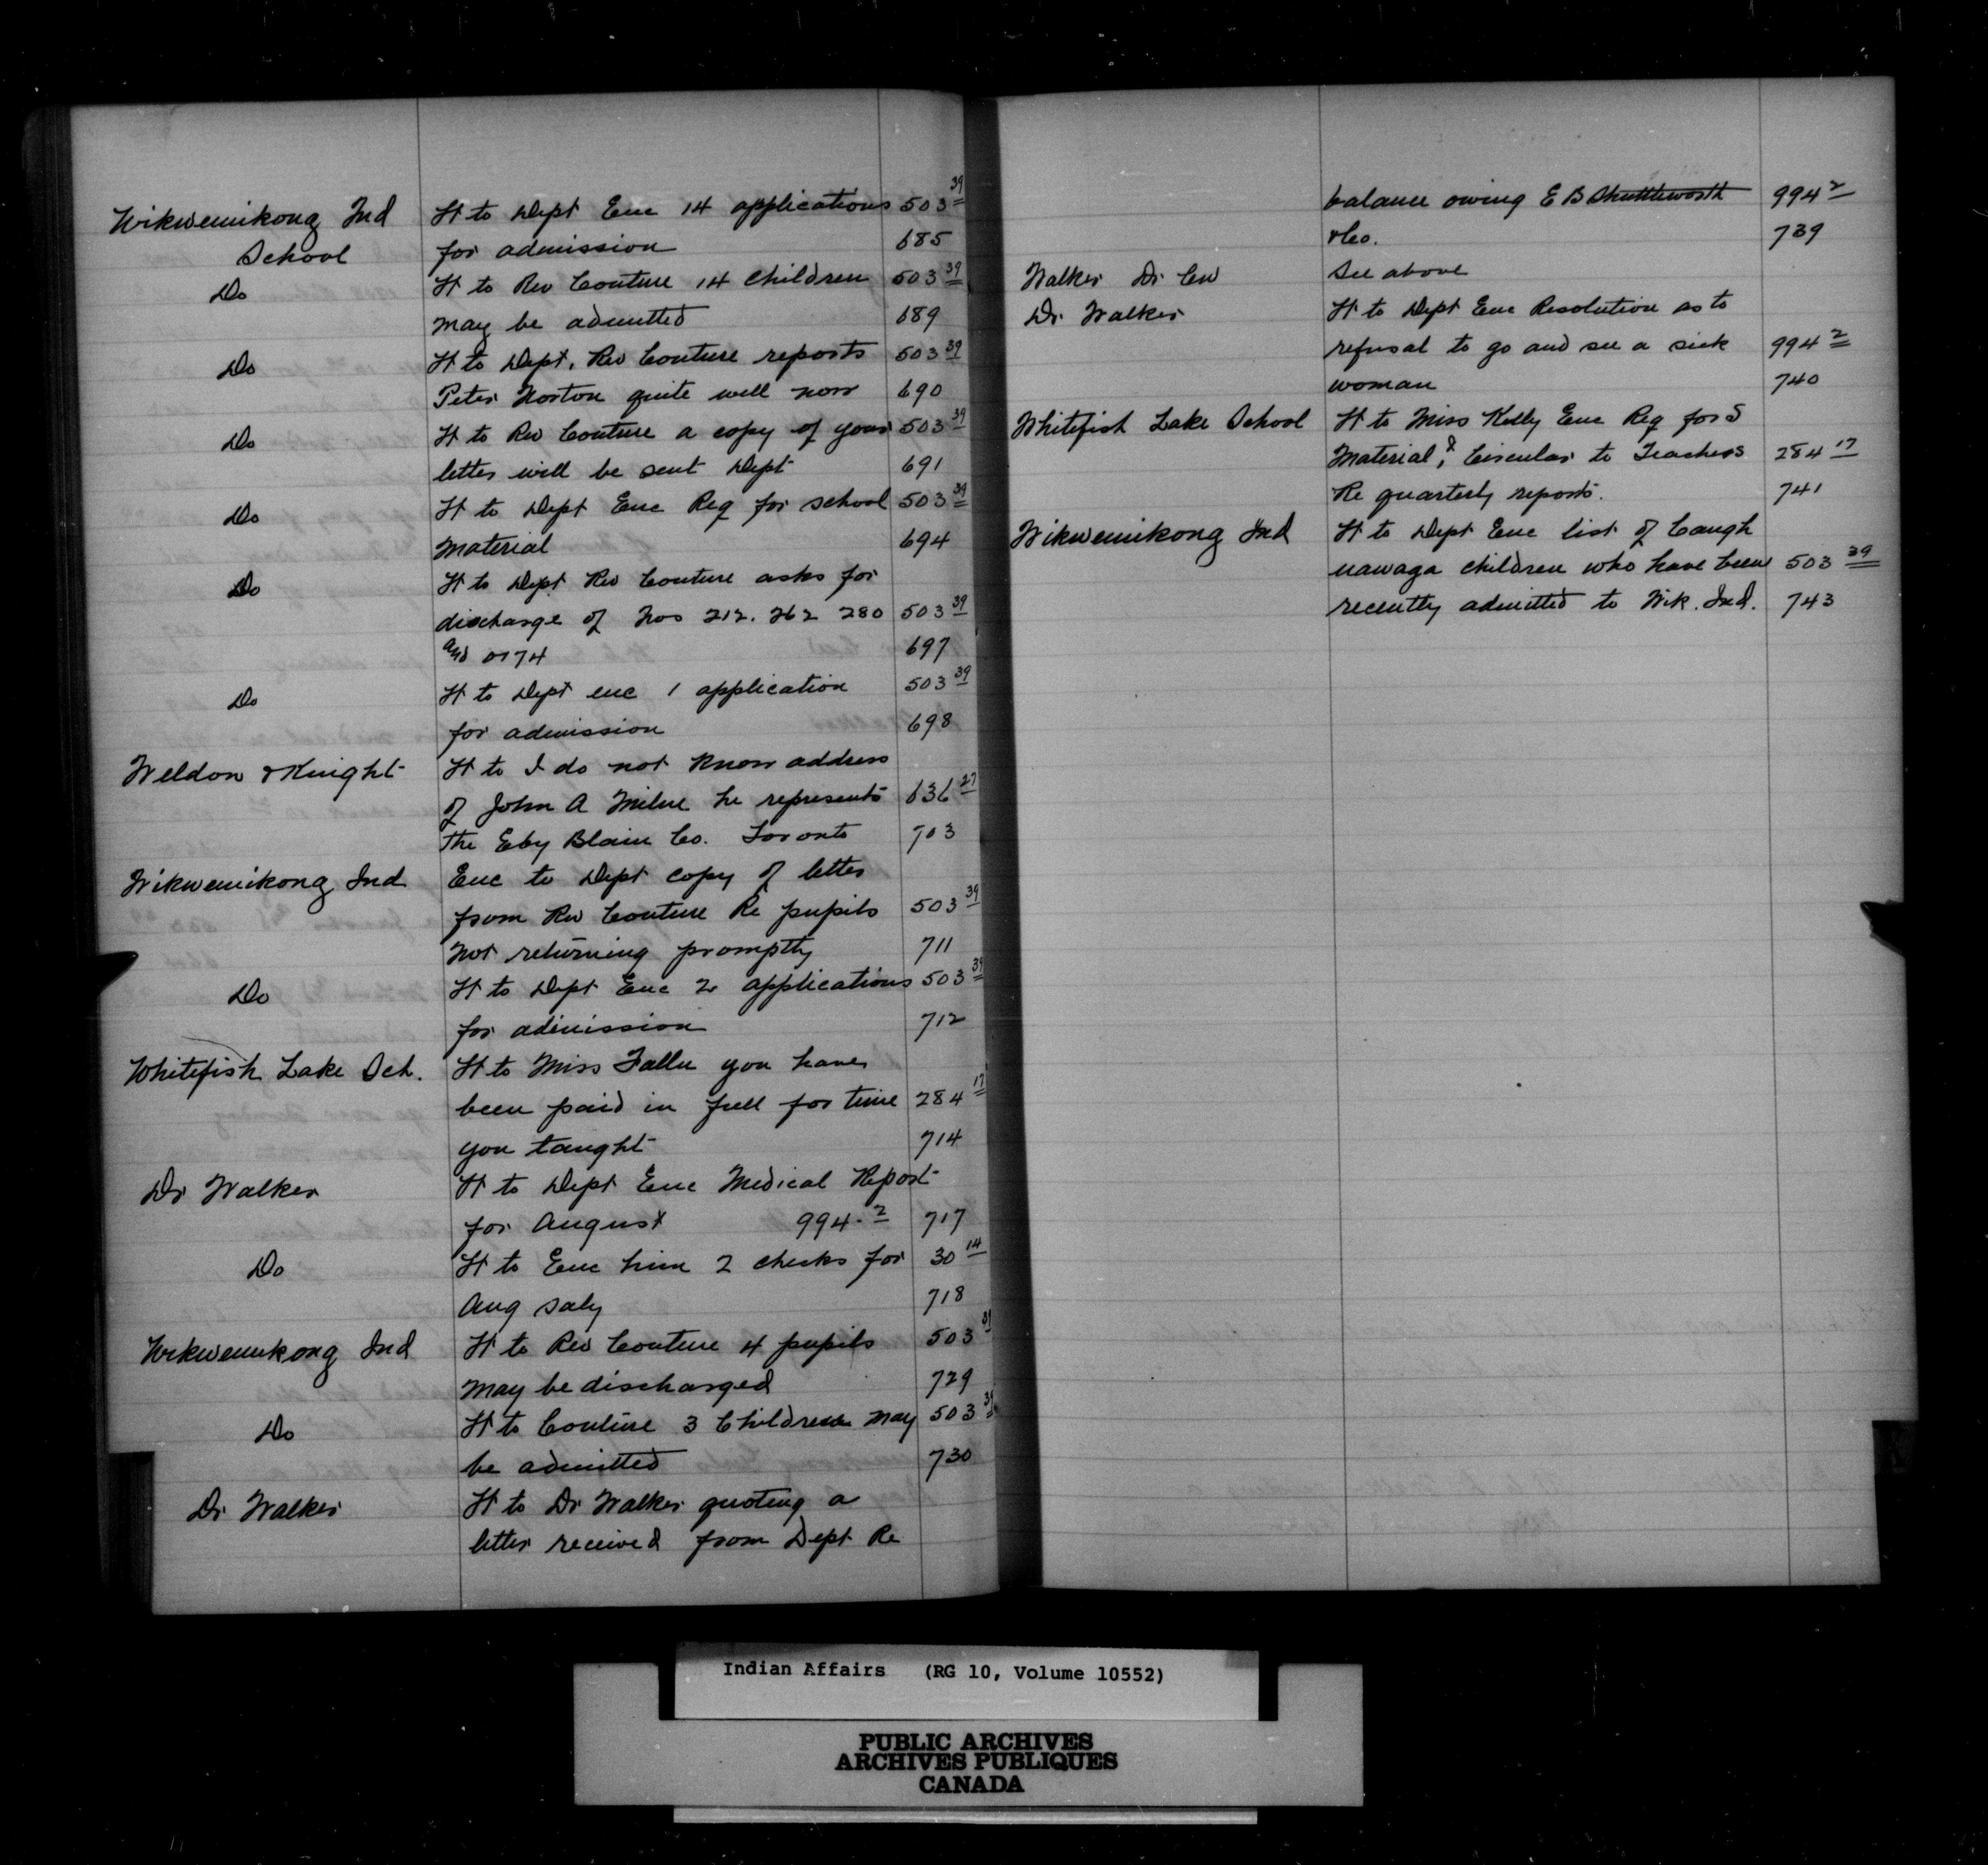 Wikwemikong Ind Ht to Dept Enc 14 applications 503 39
School for admission 685
Do Ht to Rev Couture 14 children 503 39
may be admitted 689
Do Ht to Dept, Rev Couture reports 503 39
Peter Norton quite well now 690
Do Ht to Rev Couture a copy of your 503 39
letter will be sent Dept 691
Do Ht to Dept Enc Req for school 503 39
material 694
Do Ht to Dept Rev Couture asks for
discharge of Nos 212. 262 280 503 39
and 0174 697
Do Ht to Dept enc 1 application 503 39
for admission 698
Weldon & Knight Ht to I do not know address
of John A Milne he represents 636 27
the Eby Blain Co. Toronto 703
Wikwemikong Ind Enc to Dept copy of letter
from Rev Couture Re pupils 503 39
not returning promptly 711
Do Ht to Dept Enc 2 applications 503 39
for admission 712
Whitefish Lake Sch. Ht to Miss you have
been paid in full for time 284 17
you taught 714
Dr Walker Ht to Dept Enc Medical Report
for August 994.2 717
Do Ht to Enc him 2 checks for 30 14
Aug saly 718
Wikwemikong Ind Ht to Rev Couture 4 pupils 503 39
may be discharged 729
Do Ht to Couture 3 Children may 503 39
be admitted 730
Dr Walker Ht to Dr Walker quoting a
letter received from Dept Re
balance owing E B Shuttleworth 994 2
& Co. 739
Walker Dr CW See above
Dr Walker Ht to Dept Enc Resolution as to
refusal to go and see a sick 994 2
woman 740
Whitefish Lake School Ht to Miss Kelly Enc Req for S
Material, & Circular to Teachers 284 17
Re quarterly reports. 741
Wikwemikong Ind Ht to Dept Enc list of Caugh
nawaga children who have been 503 39
recently admitted to Wik. Ind. 743
Indian Affairs (RG 10, Volume 10552)
PUBLIC ARCHIVES
ARCHIVES PUBLIQUES
CANADA